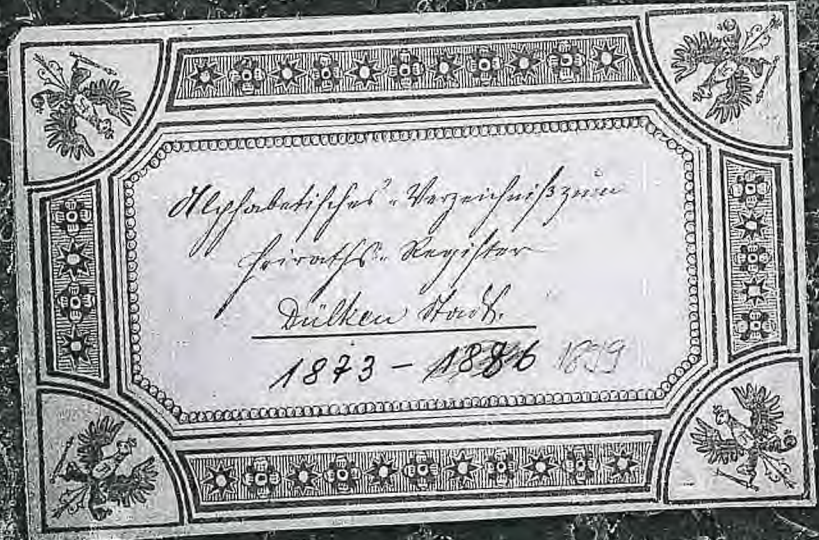 Alphabetisches-Verzeichniß zum
Heiraths-Register
Dülken Stadt.
1873 – 1886 1879